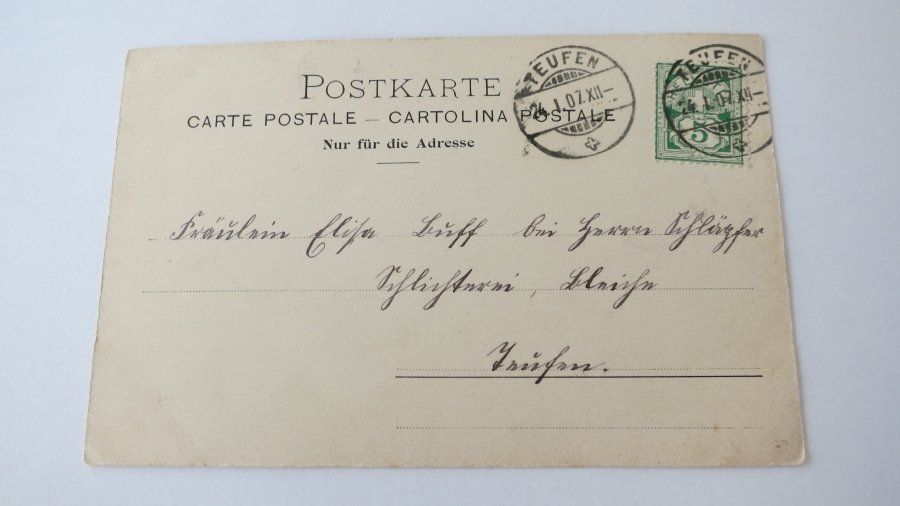 POSTKARTE
CARTE POSTALE — CARTOLINA POSTALE
Nur für die Adresse
TEUFEN
24.I.07.XII—
TEUFEN
24.I.07.XII—
5
Fräulein Elisa Buff bei Herrn Schläpfer
Schlichterei, Bleiche
Teufen.